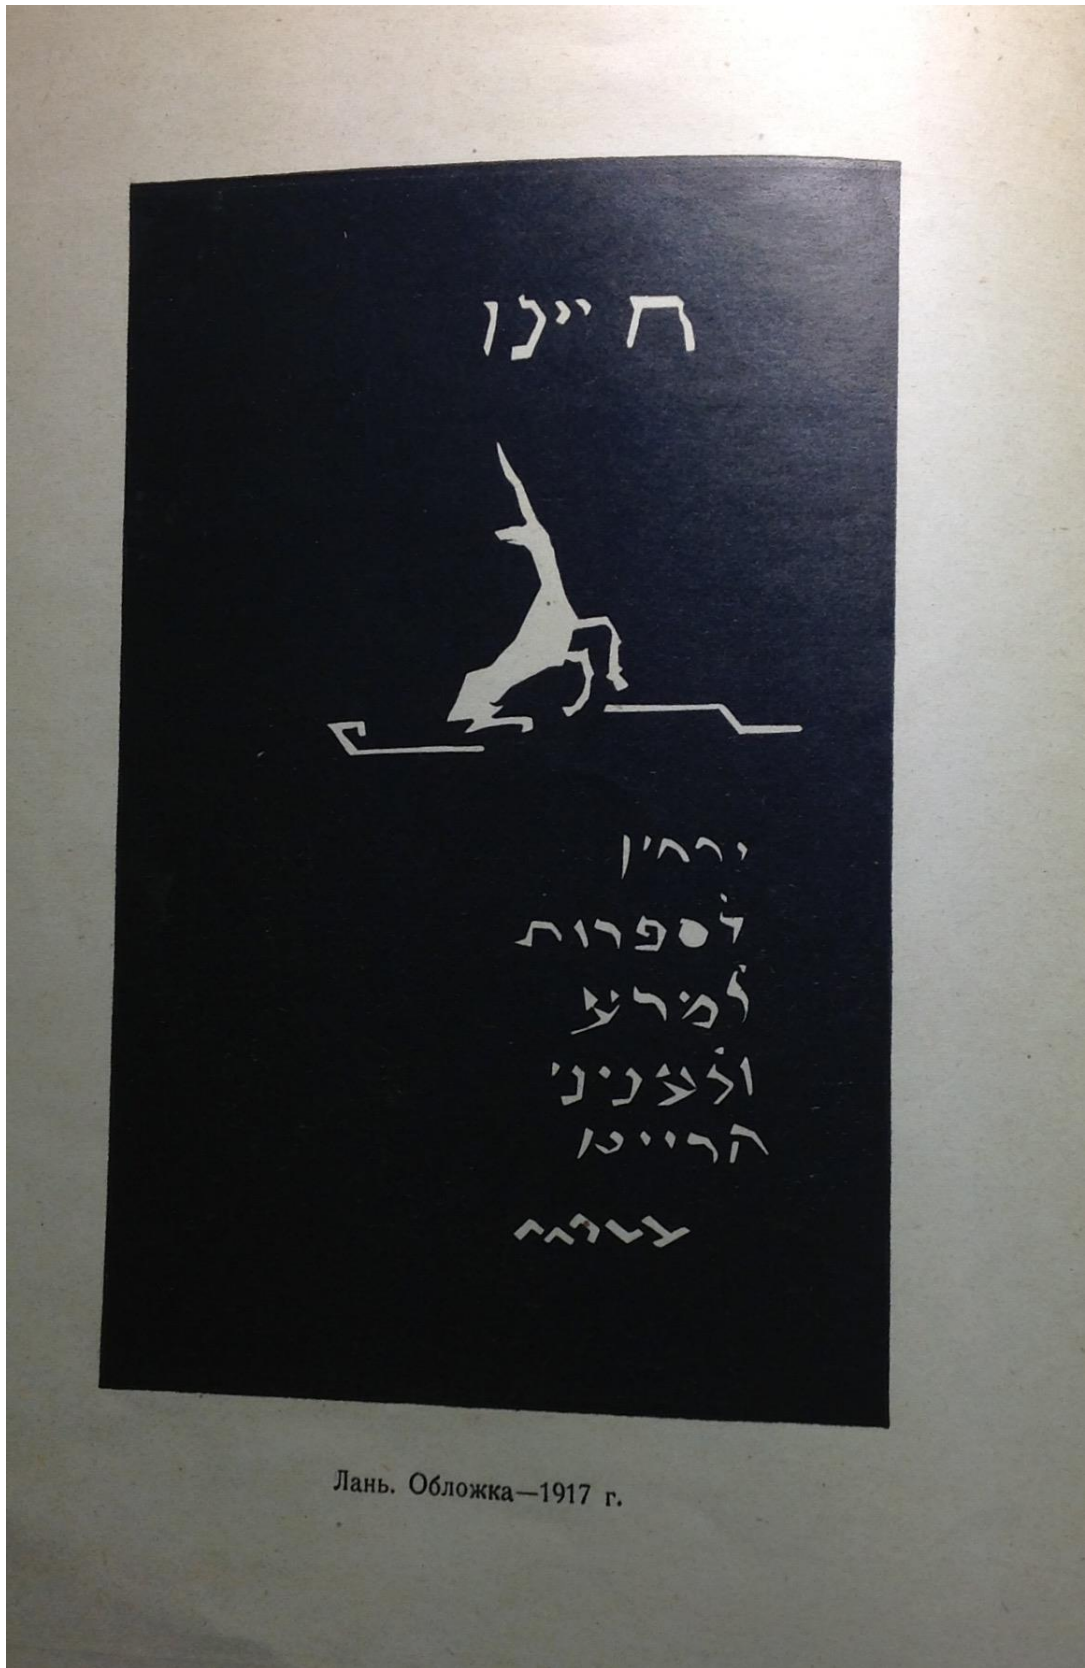 חיינו
ירחון
לספרות
למדע
ולעניני
החיים
Лань. Обложка—1917 г.